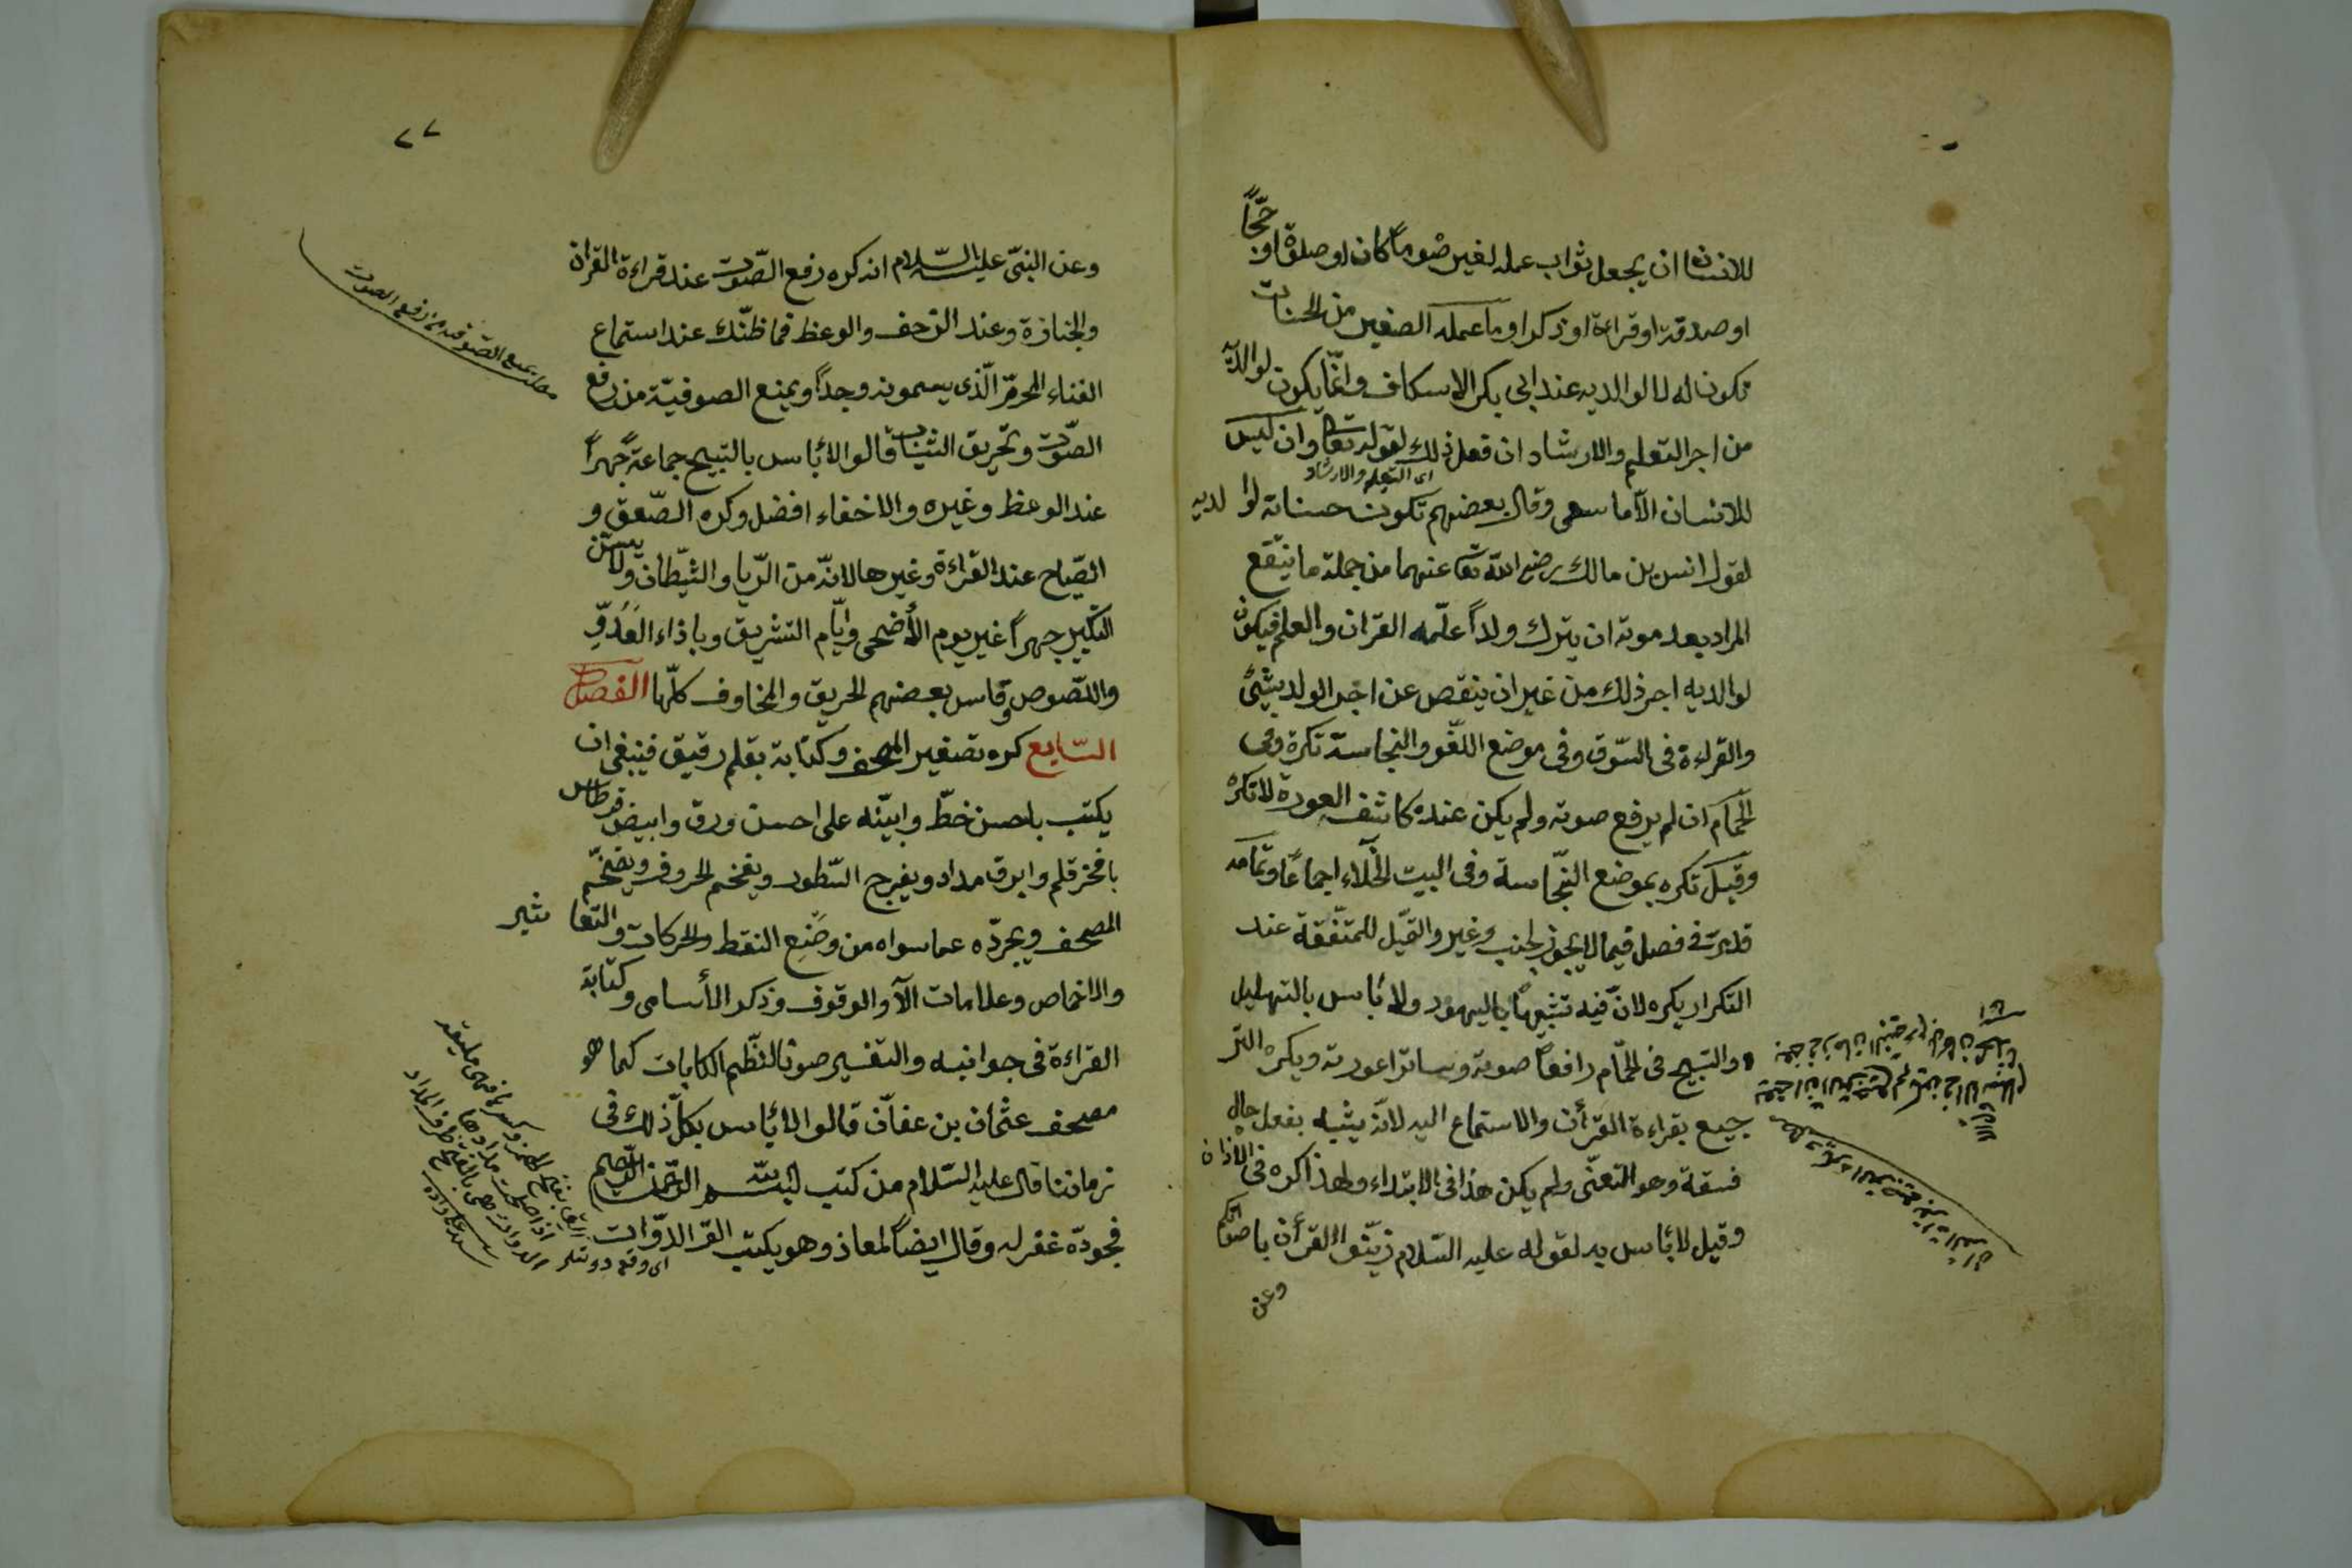 للانسان ان يجعل ثواب عمله لغيره صوماً كان او صلوة او حجّاً
او صدقة او قراءة او ذكرا وما عمله الصغير من الحسنات
تكون له لا لوالديه عند ابى بكر الاسكاف وانّما يكون لوالديه
من اجر التعليم والارشاد ان فعل ذلك لقوله تعالى وان ليس
اى التعليم والارشاد
للانسان الّا ما سعى وقال بعضهم تكون حسناته لوالديه
لقول انس بن مالك رضى الله تعا عنهما من جملة ما ينتفع
المرأ بعد موته ان يترك ولداً علّمه القران والعلم فيكون
لوالديه اجر ذلك من غير ان ينقص عن اجر الولد بشئ
والقراءة فى السّوق وفى موضع اللغو والنجاسة تكره وفى
الحمّام ان لم يرفع صوته ولم يكن عنده كاشف العورة لا تكره
وقيل تكره بموضع النّجاسة وفى البيت الخلاء اجماعاً وتمامه
قد مرّت فى فصل فيما لا يجوز لجنب وغيره والتميّل للمتفقهة عند
التكرار يكره لانّ فيه تشبيهاً باليهود ولا بأس بالتهليل
والتسبيح فى الحمّام رافعاً صوته وساترا عورته ويكره التر
جيع بقراءة القرأن والاستماع اليه لانّه يشبه بفعل حال
فسقة وهو التغنّى ولم يكن هذا فى الابتداء ولهذا كره فى الاذان
وقيل لا بأس به لقوله عليه السّلام زيّنوا القرأن باصواتكم
وعن
٧٧
وعن النبىّ عليه السّلام انه كره رفع الصّوت عند قراءة القران
والجنازة وعند الزحف والوعظ فما ظنّك عند استماع
الغناء المحرّم الّذى يسمونه وجداً ويمنع الصوفيّة من رفع
الصّوت وتخريق الثياب قالوا لا بأس بالتسبيح جماعة جهراً
عند الوعظ وغيره والاخفاء افضل وكره الصّعق و
الصّياح عند القراءة وغيرها لانّه من الرّيا والشّيطان ولا يسنّ
التكبير جهراً غير يوم الأضحى وايّام التشريق وباذاء العدوّ
واللّصوص وقاس بعضهم الحريق والمخاوف كلّها الفصل
السّابع كره تصغير المصحف وكتابة بقلم رقيق فينبغى ان
يكتب باحسن خطّ وابينه على احسن ورق وابيض قرطاس
بافخر قلم وابرق مداد ويفرج السّطور ويفخم الحروف ويضخّم
المصحف ويجرّده عما سواه من وضع النقط والحركات والتعاشير
والاخماس وعلامات الآى والوقوف وذكر الأسامى وكتابة
القراءة فى جوانبه والتفسير صونا لنظم الكلمات كما هو
مصحف عثمان بن عفّان قالوا لا بأس بكلّ ذلك فى
زماننا قال عليه السّلام من كتب بسم الله الرّحمن الرّحيم
فجوده غفر له وقال ايضاً لمعاذ وهو يكتب الق الدّوات
مطلب يمنع الصوفية من رفع الصوت